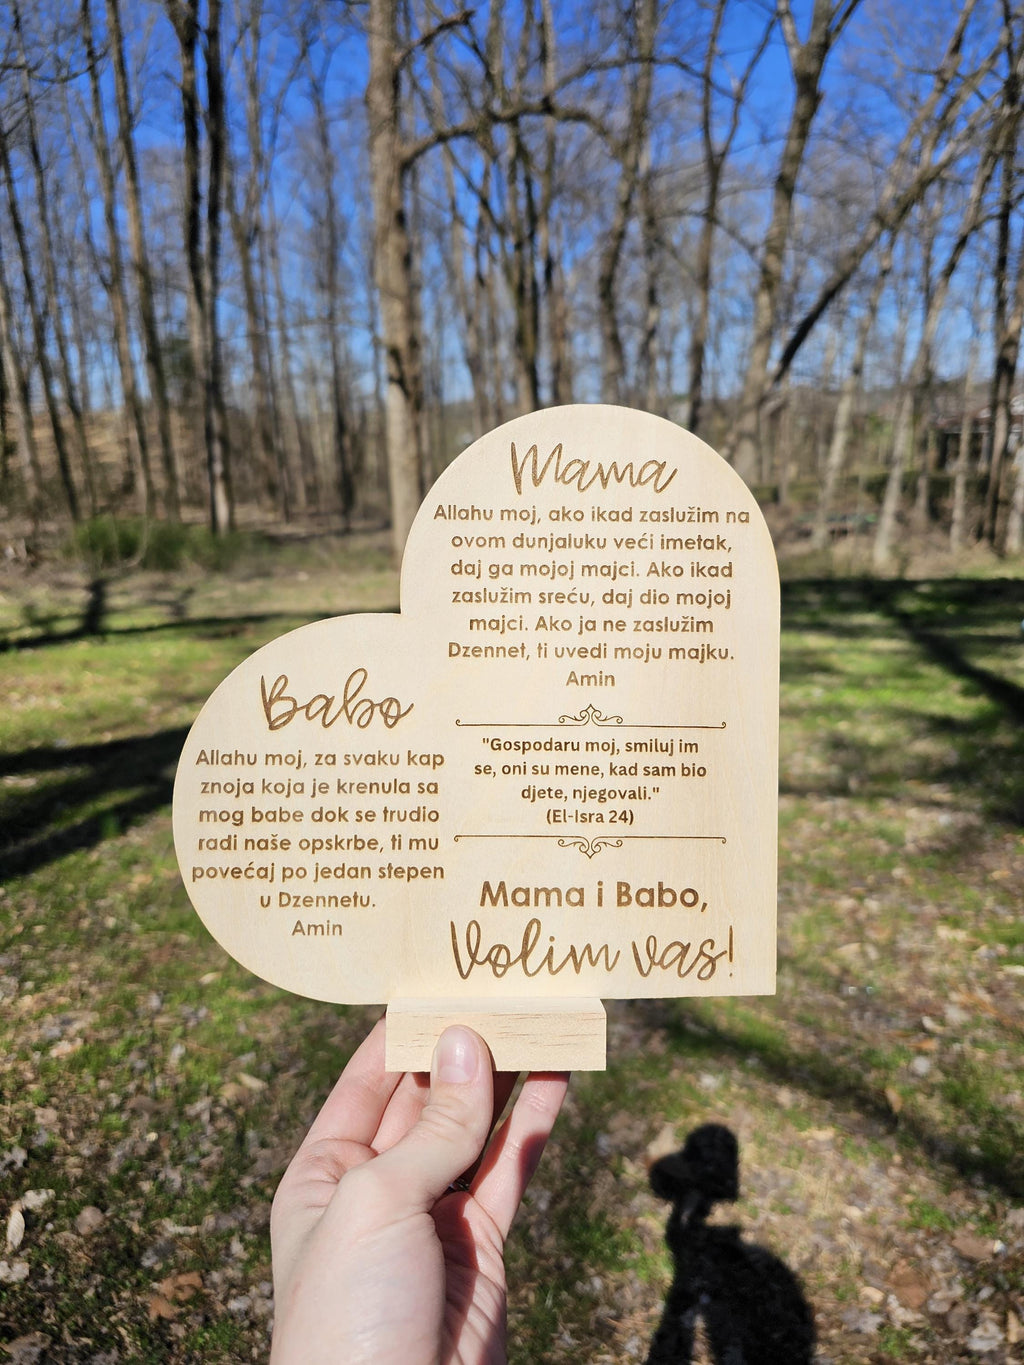 Mama
Allahu moj, ako ikad zaslužim na
ovom dunjaluku veći imetak,
daj ga mojoj majci. Ako ikad
zaslužim sreću, daj dio mojoj
majci. Ako ja ne zaslužim
Dzennet, ti uvedi moju majku.
Amin
Babo
Allahu moj, za svaku kap
znoja koja je krenula sa
mog babe dok se trudio
radi naše opskrbe, ti mu
povećaj po jedan stepen
u Dzennetu.
Amin
"Gospodaru moj, smiluj im
se, oni su mene, kad sam bio
djete, njegovali."
(El-Isra 24)
Mama i Babo,
Volim vas!